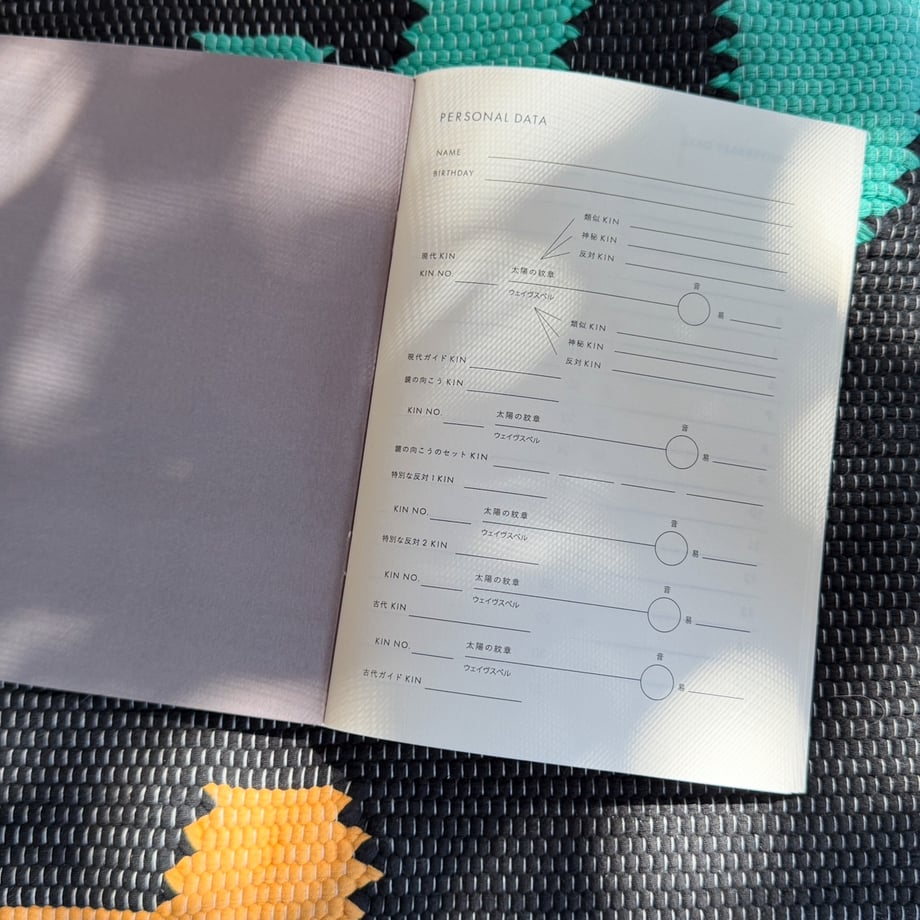 PERSONAL DATA
NAME
BIRTHDAY
類似 KIN
神秘 KIN
反対 KIN
現代 KIN
KIN NO
太陽の紋章
音
易
ウェイヴスペル
類似 KIN
神秘 KIN
反対 KIN
現代ガイド KIN
鏡の向こう KIN
KIN NO.
太陽の紋章
音
易
ウェイヴスペル
鏡の向こうのセット KIN
特別な反対 1 KIN
KIN NO.
太陽の紋章
音
易
ウェイヴスペル
特別な反対 2 KIN
KIN NO.
太陽の紋章
音
易
ウェイヴスペル
古代 KIN
KIN NO.
太陽の紋章
音
易
ウェイヴスペル
古代ガイド KIN